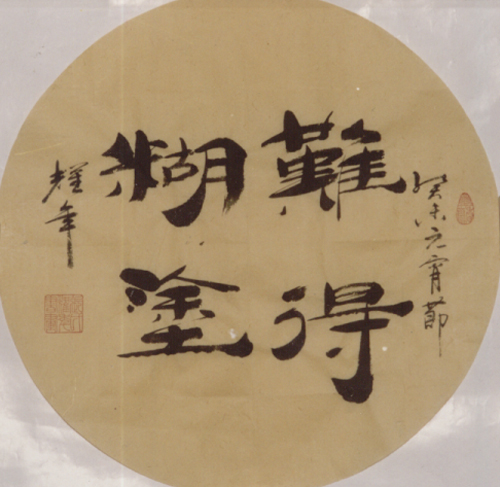 癸未元宵節
難得
糊塗
耀年